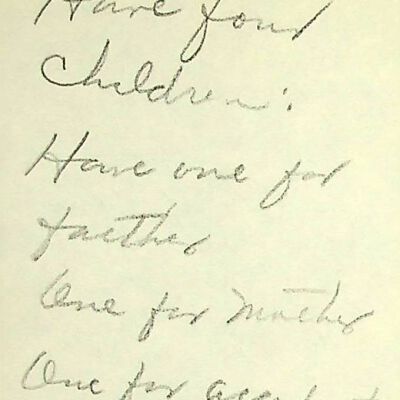 Have four
Children:
Have one for
faether
One for Mother
One for